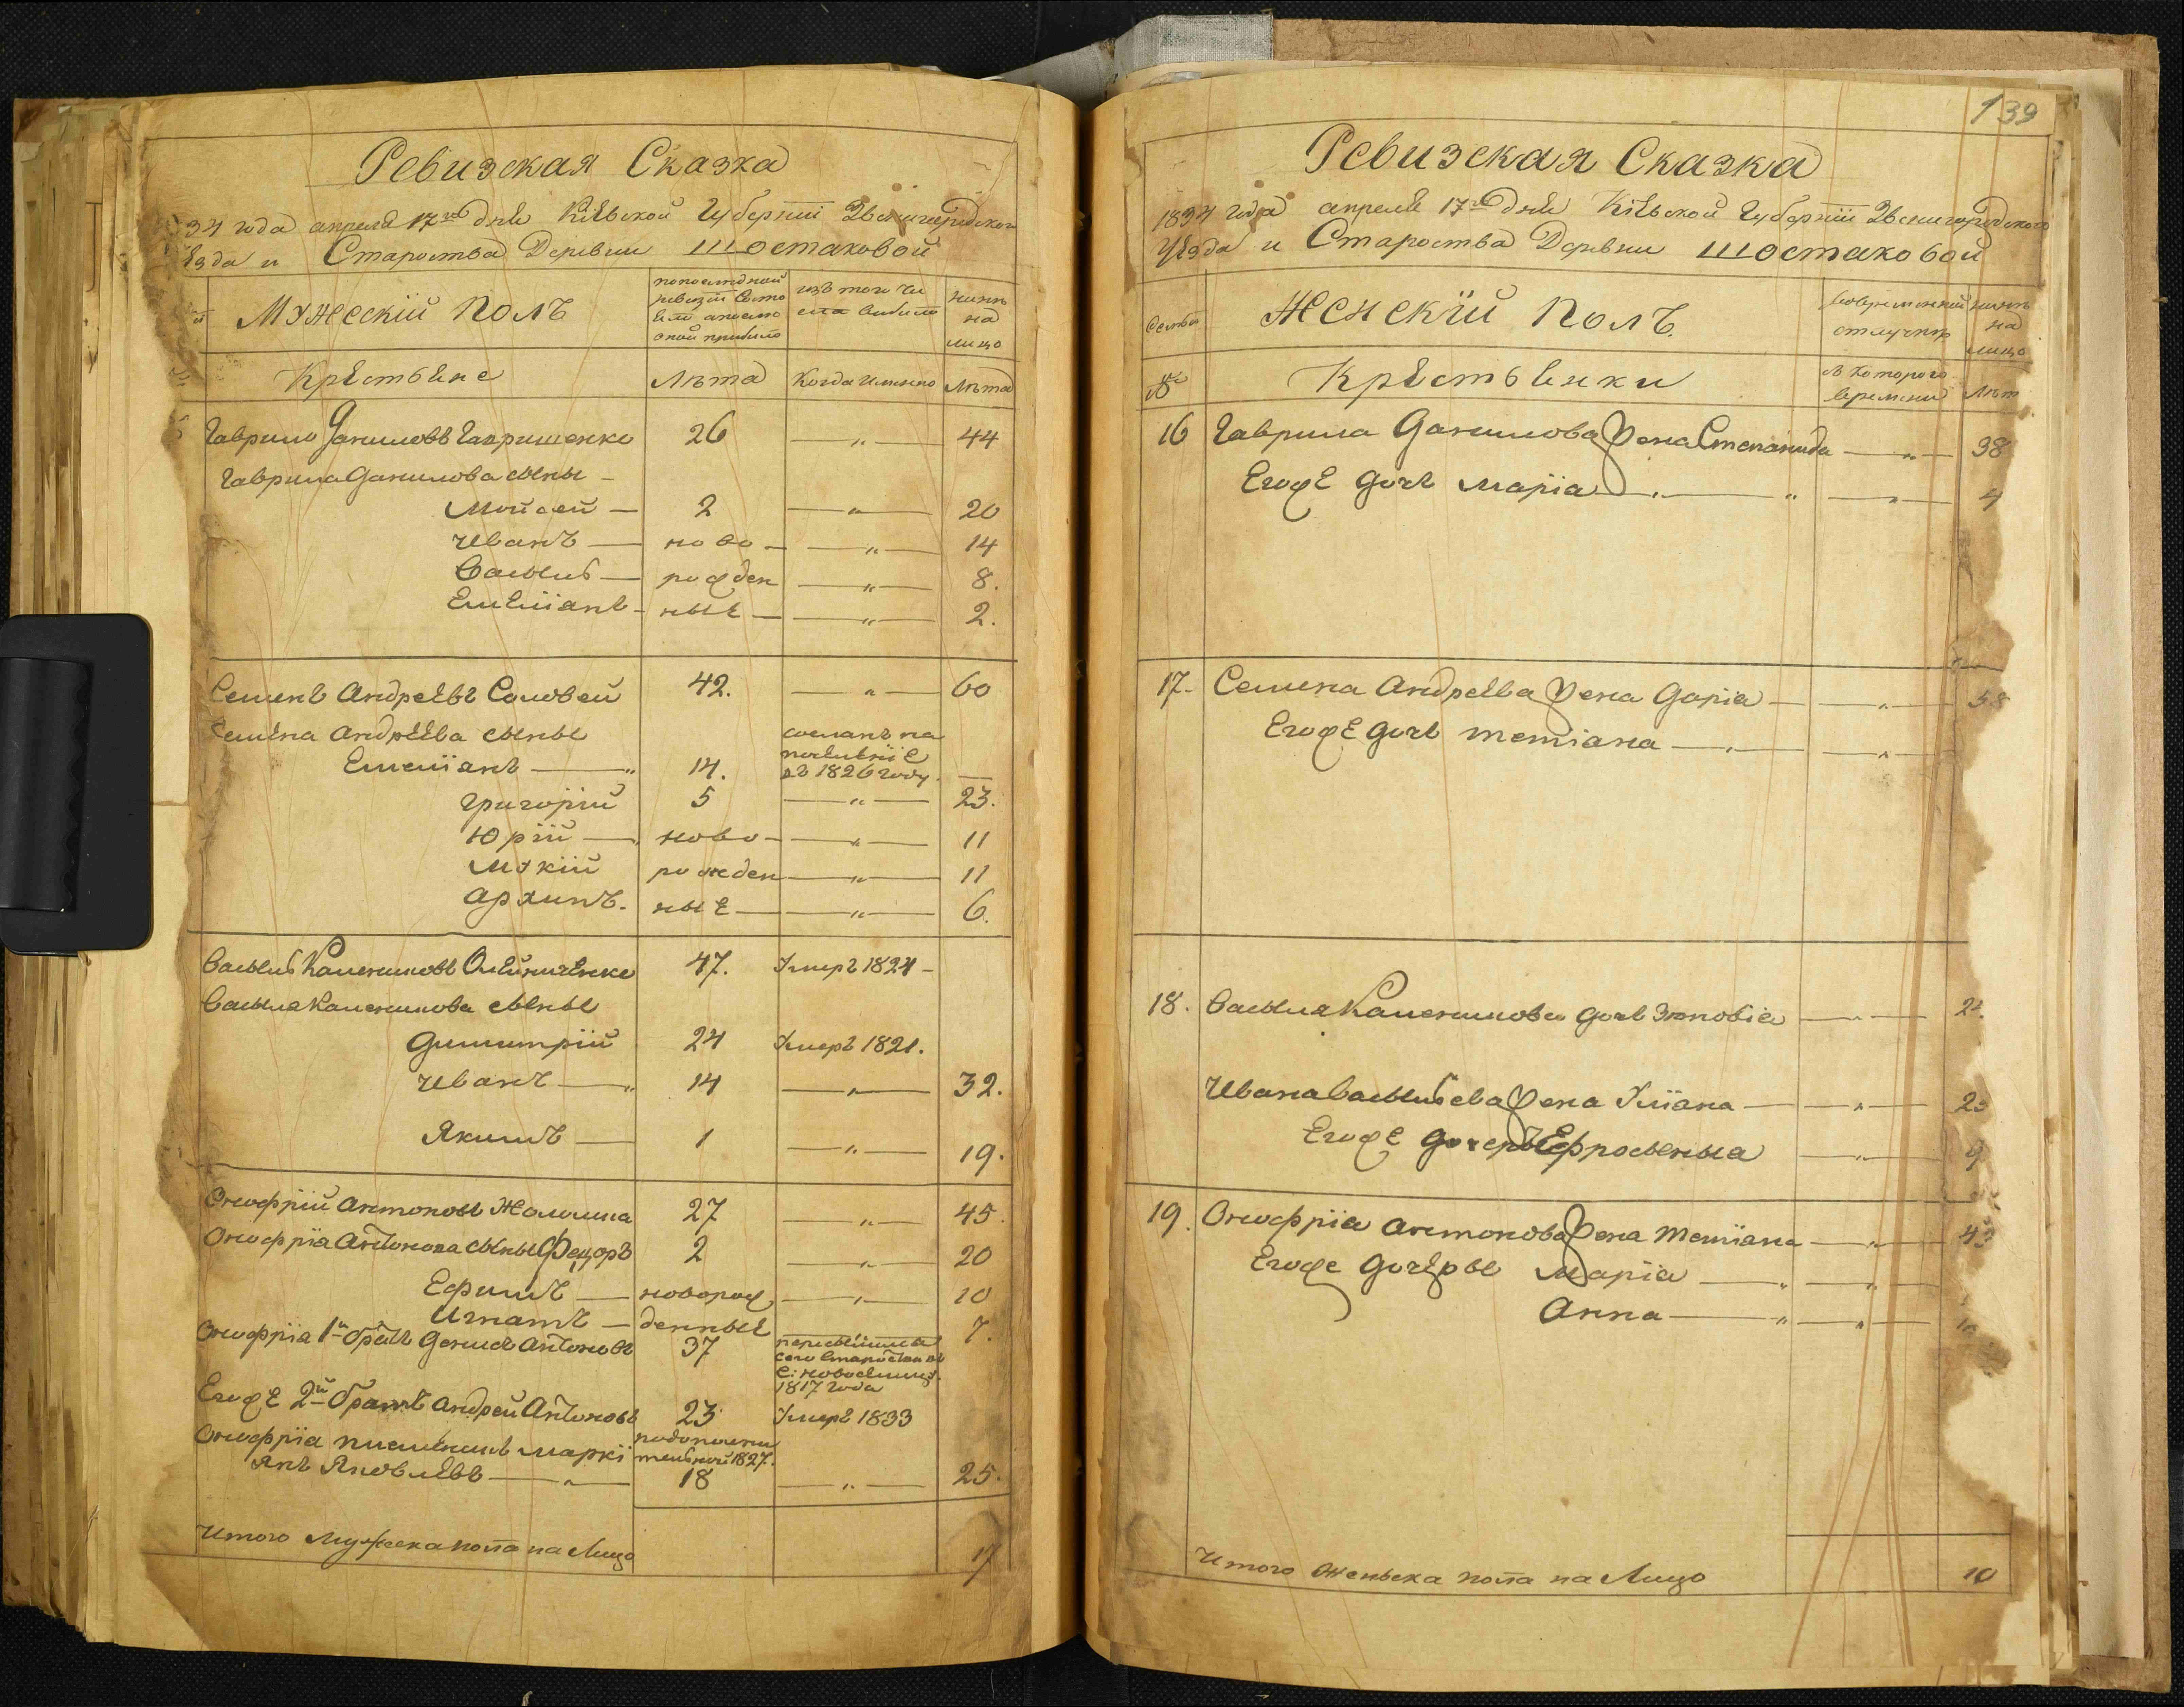 Ревизская Сказка
34 года апреля 17го дня Кіевской Губерніи Звенигородского
ѣзда и Староства Деревни Шостаковой
Мужескій полъ
по последной ревизіи состо
изъ того чи сла выбыло
нынѣ на лицо
Крѣстьяне
Лѣта
Когда именно
Лѣта
Гаврило Даниловъ Гавришенко 26 — " — 44
Гаврила Данилова сыны —
Мойсей — 2 — " — 20
Иванъ — ново — — " — 14
Василь — рожден — " — 8.
Емеліянъ — ныѣ — — " — 2.
Семенъ Андреевъ Соловей 42. — " — 60
Семена Андреева сыны
Емеліянъ — " 14. сосланъ на поселеніе въ 1826 году. —
Григорій 5 — " — 23.
Юрій — ново — — " — 11
Мокій рожден — " — 11
Архипъ. ныѣ — — " — 6.
Василь Калениковъ Олейниченко 47. Умеръ 1824 —
Василя Каленикова сыны
Димитрій 24 Умеръ 1821.
Иванъ — " 14 — " — 32.
Якимъ — 1 — " — 19.
Онофрій Антоновъ 27 — " — 45.
Онофрія Антонова сыны Федоръ 2 — " — 20
Ефимъ — новорож — " — 10
Игнатъ — денныѣ 7.
Онофрія 1й братъ Денисъ Антоновъ 37
сего Староства въ
1817 года
Егожѣ 2й братъ Андрей Антоновъ 23 Умеръ 1833
Онофрія племеникъ Маркі
янъ Яковлевъ — " — 18 — " — 25.
1827.
Итого Мужеска пола на Лицо 17
139
Ревизская Сказка
1834 года апреля 17го дня Кіевской Губерніи Звенигородского
Уѣзда и Староства Деревни Шостаковой
Семьи
Женскій полъ.
во временной отлучкѣ
нынѣ на лицо
№
Крѣстьянки
съ Которого времени
Лѣт
16 Гаврила Данилова жена Степанида — " — 38
Егожѣ дочь Марія — " — " — " — 4
17. Семена Андреева жена Дарія — — " — 58
Егожѣ дочь Тетіана — " — — " —
18. Василя Каленикова дочь Зѣновія — " — 2
Ивана Васильева жена Уліана — — " — 2
Егожѣ дочерь Ефросыныа — " — 9
19. Онофрія Антонова жена Тетіана — " — 43
Егоже дочѣры Марія — " — " —
Анна — " — " —
Итого Женьска пола на Лицо 10